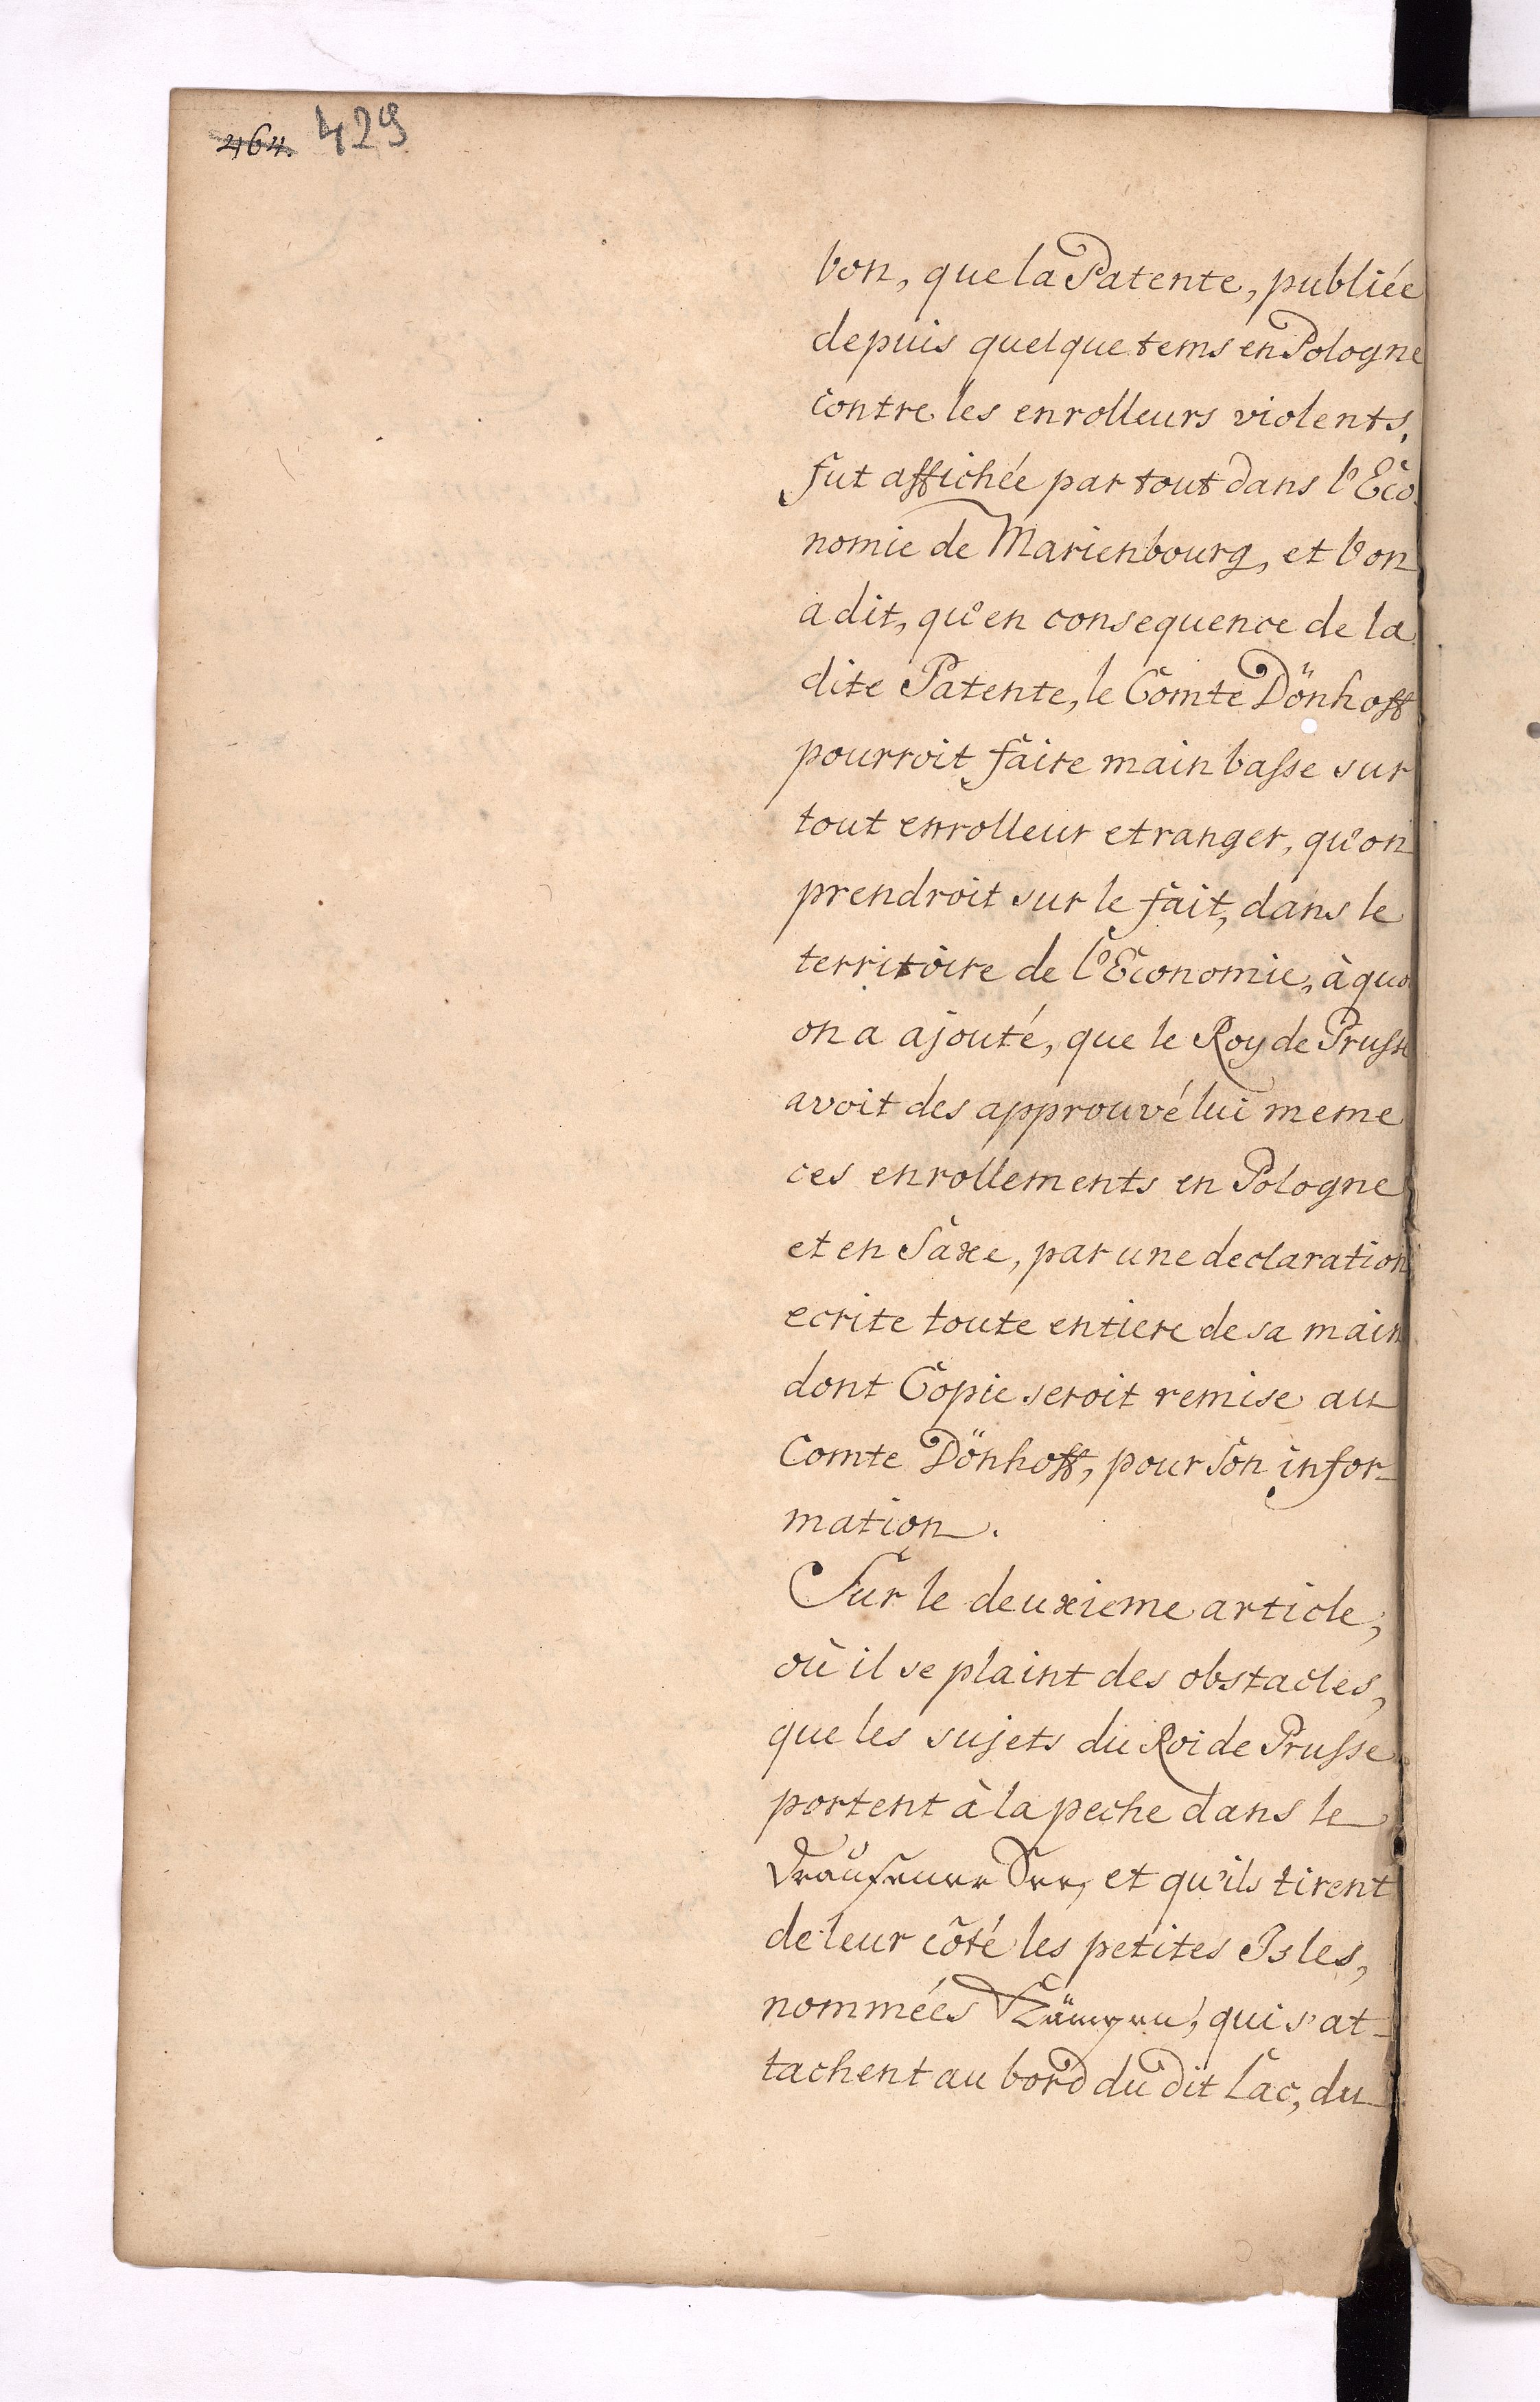 464. 429
bon, que la Patente, publiée
depuis quelque tems en Pologne
contre les enrolleurs violents,
fut affichée par tout dans l'Eco-
nomie de Marienbourg, et l'on
a dit, qu'en consequence de la
dite Patente, le Comte Dönhoff
pourroit faire main basse sur
tout enrolleur etranger, qu'on
prendroit sur le fait, dans le
territoire de l'Economie, à quoi
on a ajouté, que le Roy de Prusse
avoit des approuvé lui meme
ces enrollements en Pologne
et en Saxe, par une declaration
ecrite toute entiere de sa main
dont Copie seroit remise au
Comte Dönhoff, pour son infor-
mation.
Sur le deuxieme article,
où il se plaint des obstacles,
que les sujets du Roi de Prusse
portent à la peche dans le
Drausener See, et qu'ils tirent
de leur côté les petites Isles,
nommées Kämpen, qui s'at-
tachent au bord du dit Lac, du